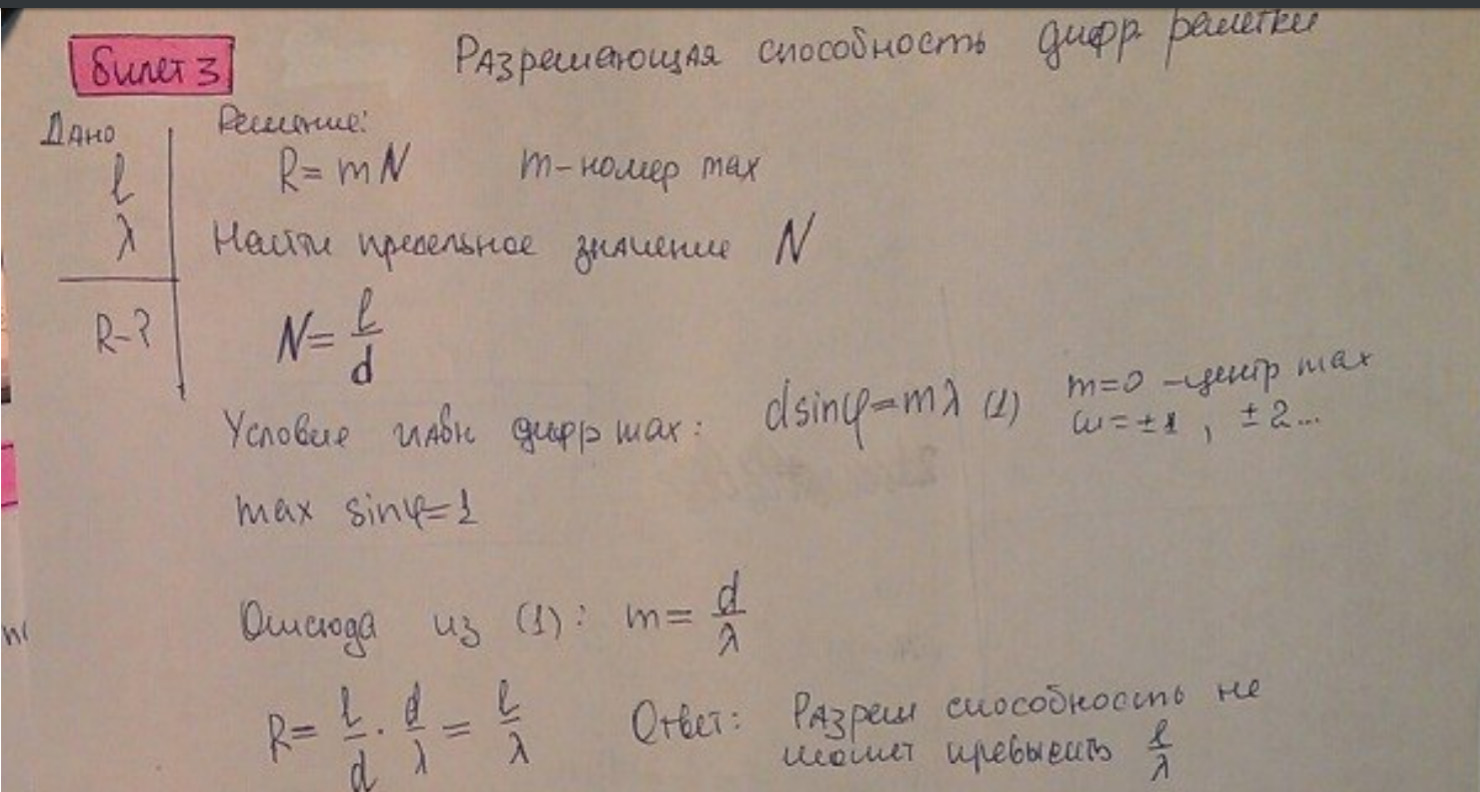 Билет 3
Разрешающая способность дифр решетки
Дано
Решение:
l
λ
R-?
R = mN m-номер max
Найти предельное значение N
N = l/d
Условие главн дифр max: d sinφ = mλ (1) m=0 - центр max
m = ±1, ±2...
max sinφ=1
Отсюда из (1): m = d/λ
R = l/d · d/λ = l/λ Ответ: Разреш способность не
может превысить l/λ